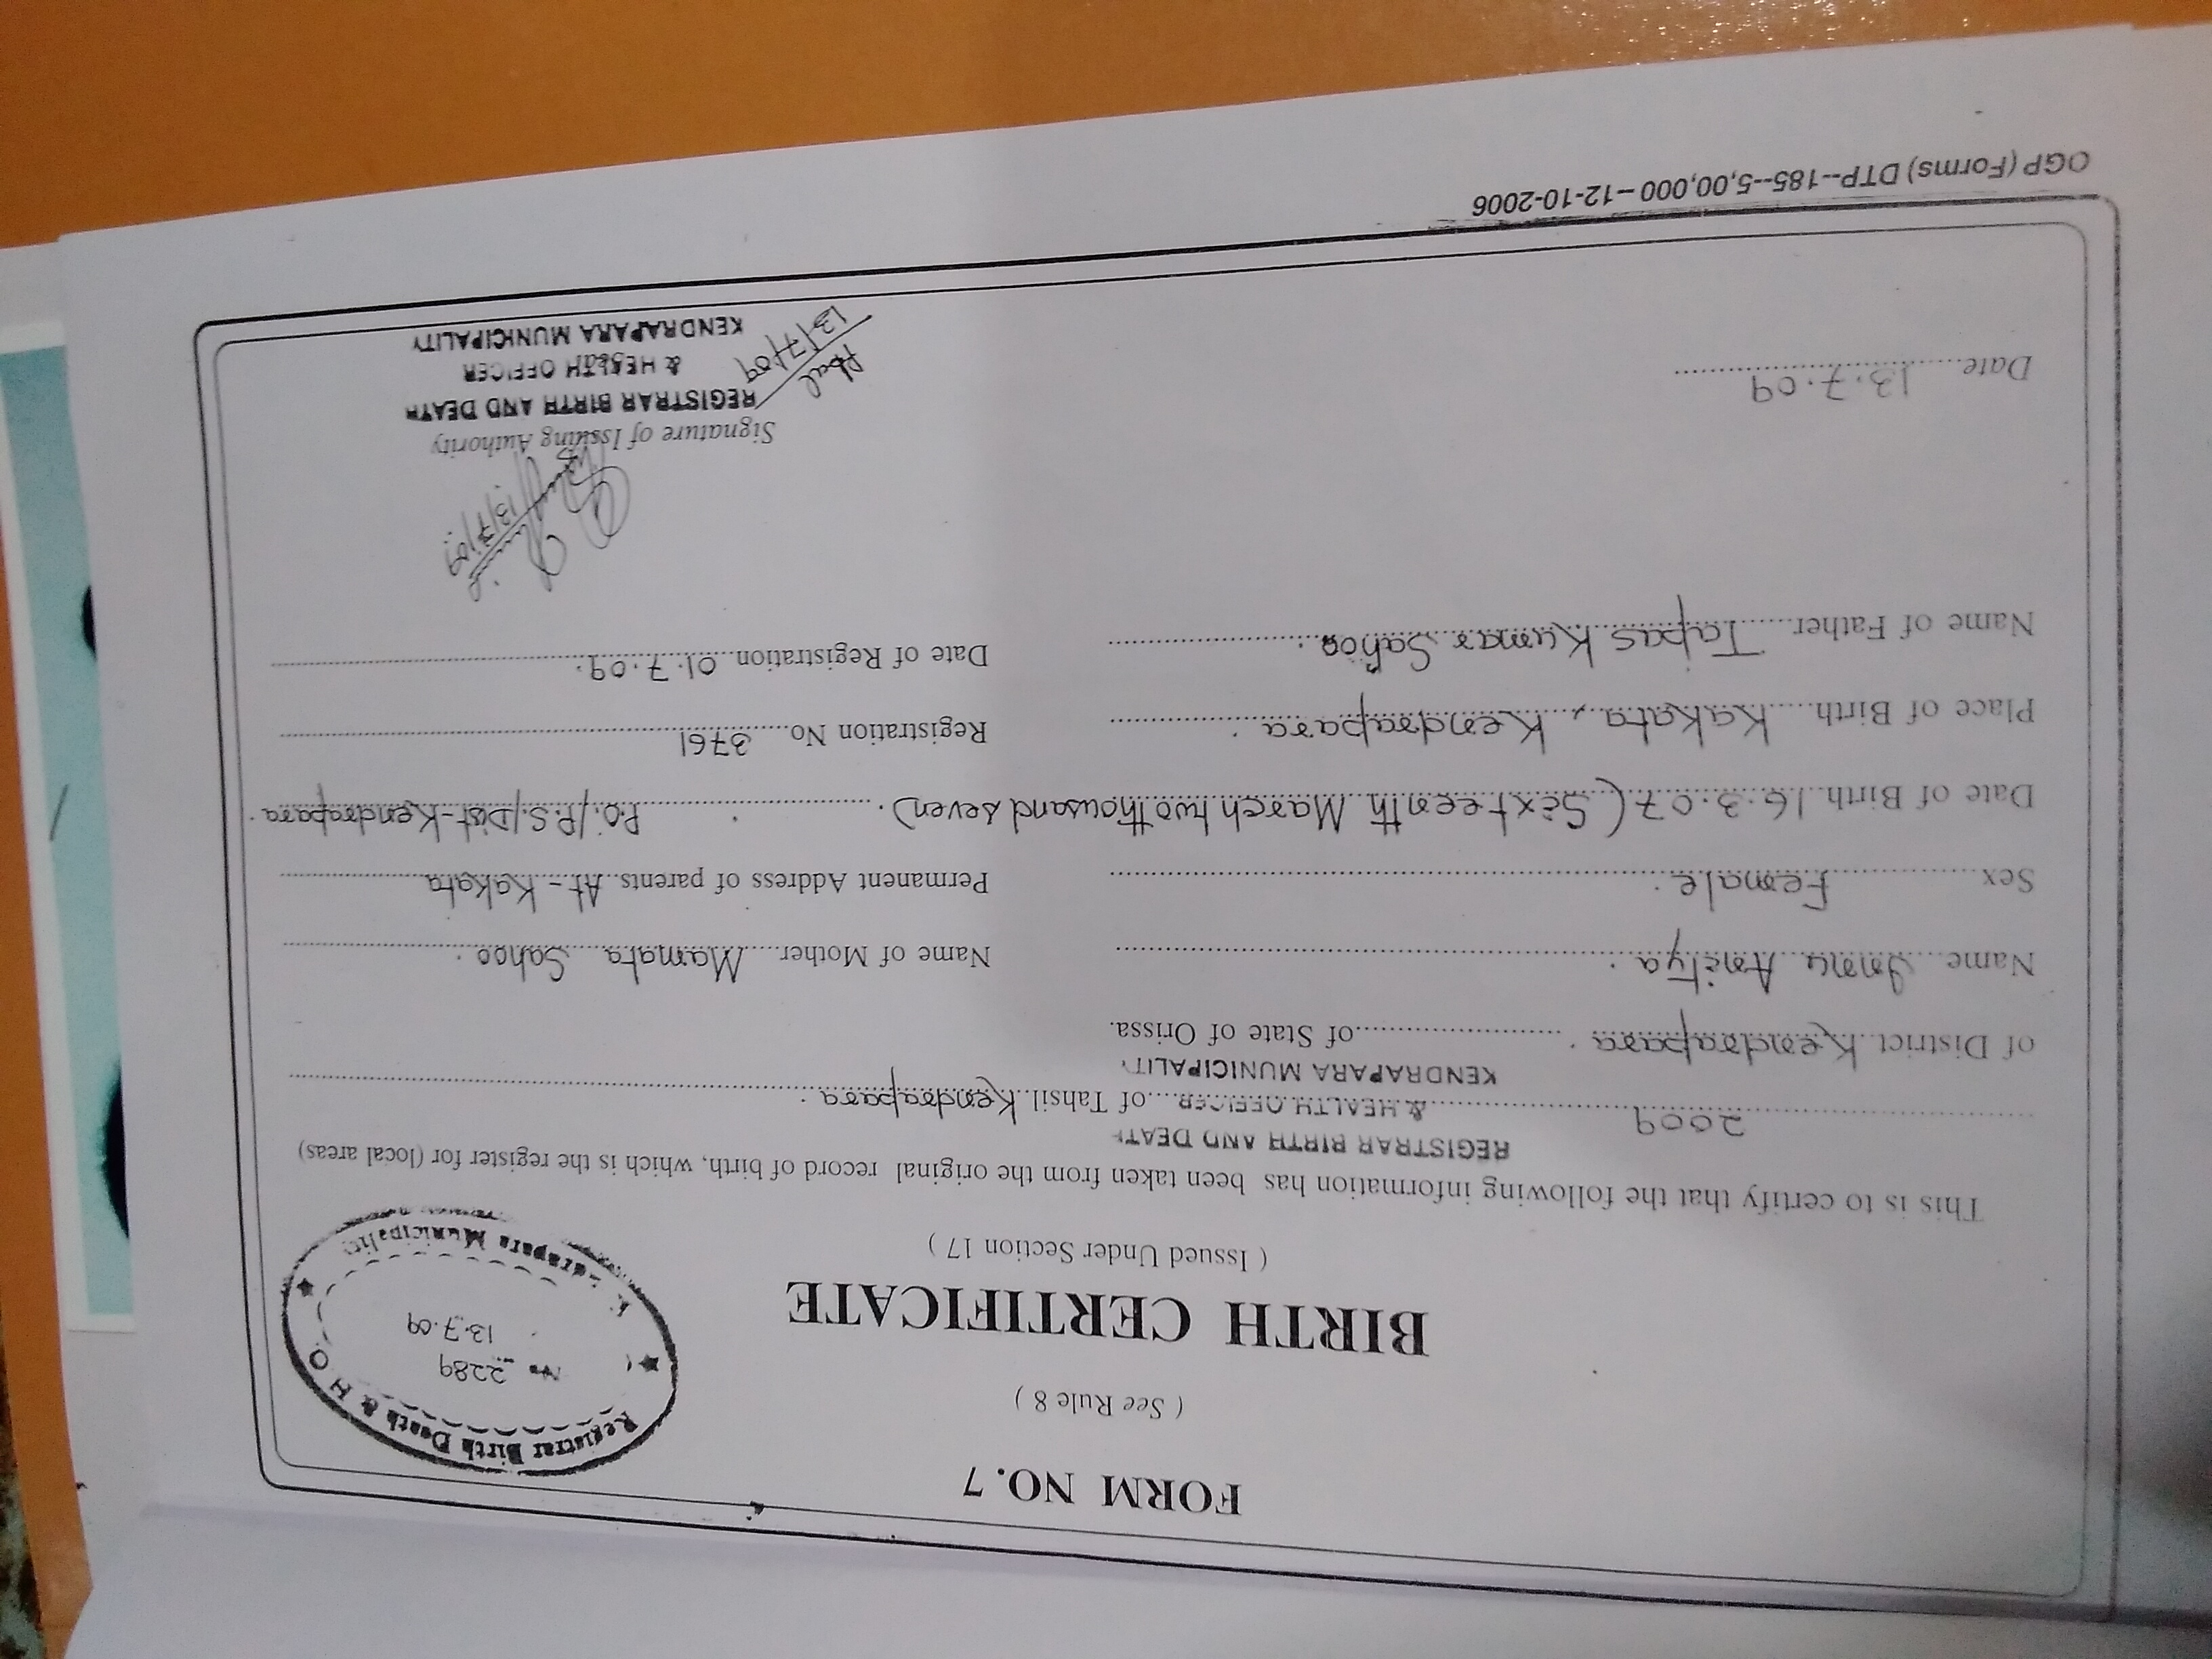 FORM NO. 7
( See Rule 8 )
BIRTH CERTIFICATE
( Issued Under Section 17 )
Registrar Birth Death & H O
No 2289
13.7.09
Municipality
This is to certify that the following information has been taken from the original record of birth, which is the register for (local areas)
REGISTRAR BIRTH AND DEATH
2009 & HEALTH OFFICER of Tahsil Kendrapara.
KENDRAPARA MUNICIPALITY
of District Kendrapara. of State of Orissa.
Name Innu Anitya.
Name of Mother Mamata Sahoo.
Sex Female.
Permanent Address of parents At - Kakata
P.O./P.S./Dist-Kendrapara.
Date of Birth 16.3.07 (Sixteenth March two thousand seven).
Place of Birth Kakata, Kendrapara.
Registration No 3761
Name of Father Tapas Kumar Sahoo.
Date of Registration 01.7.09.
13/7/09
Signature of Issuing Authority
REGISTRAR BIRTH AND DEATH
& HEALTH OFFICER
KENDRAPARA MUNICIPALITY
13/7/09
Date 13.7.09
OGP (Forms) DTP--185--5,00,000--12-10-2006